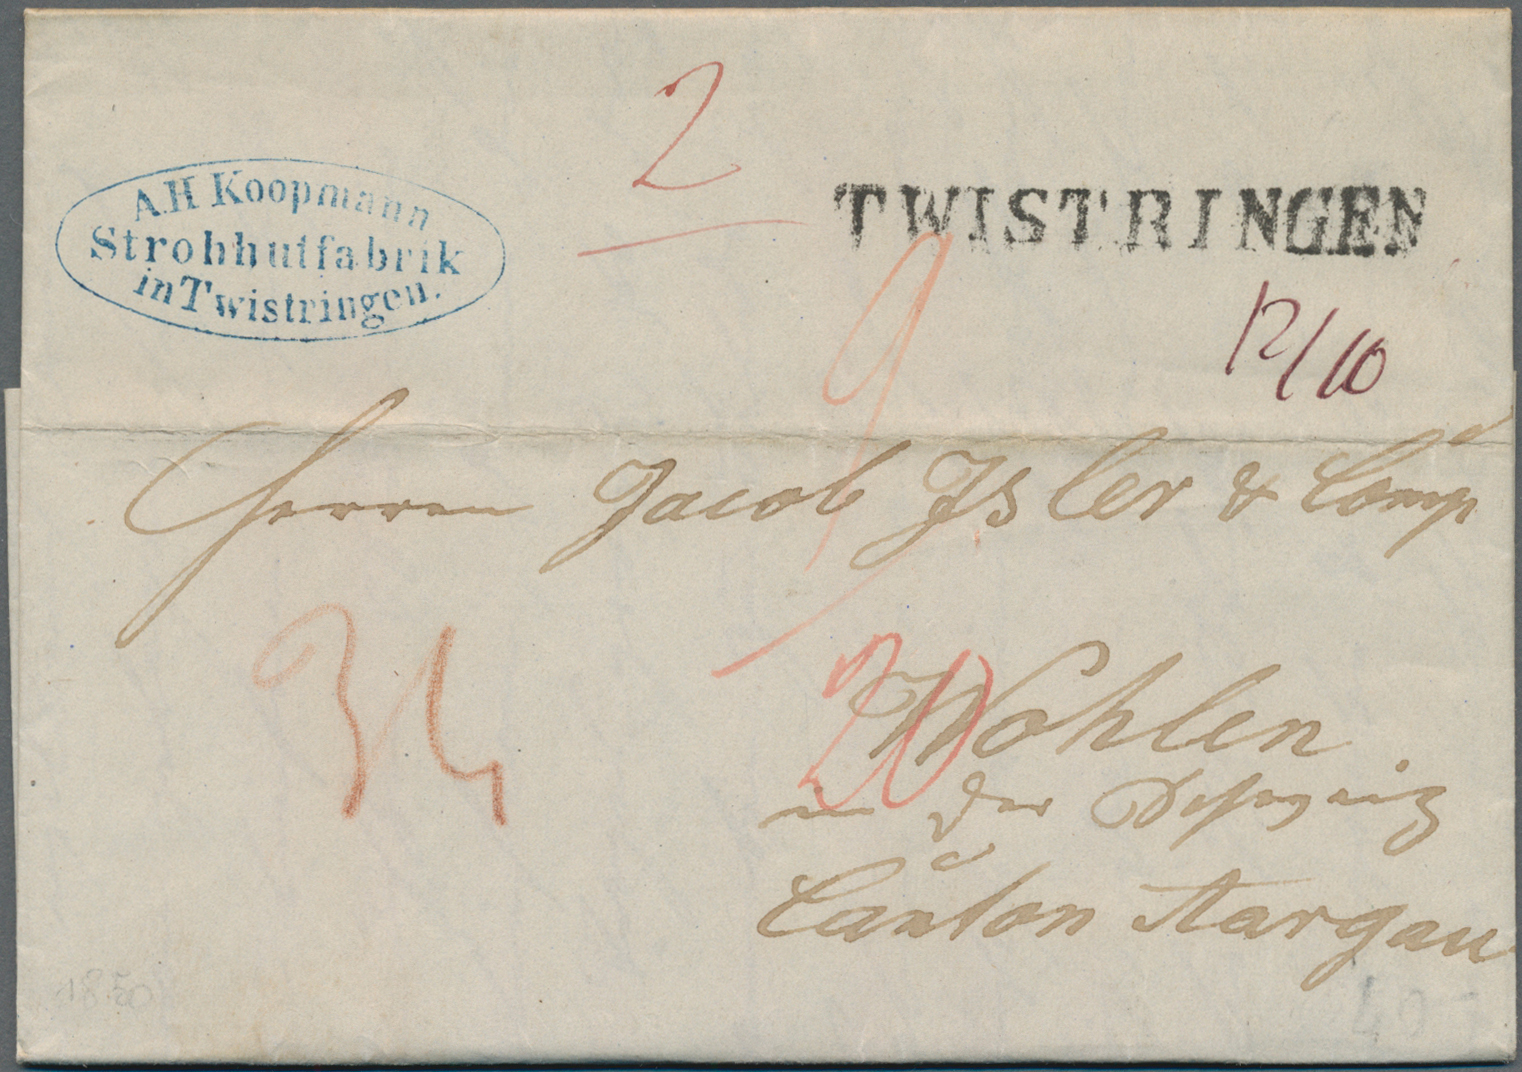 2
A.H Koopmann
Strohhutfabrik
in Twistringen.
TWISTRINGEN
12/10
9
Herren Jacob Isler & Comp
34
20
Wohlen
in der Schweiz
Canton Aargau
1850